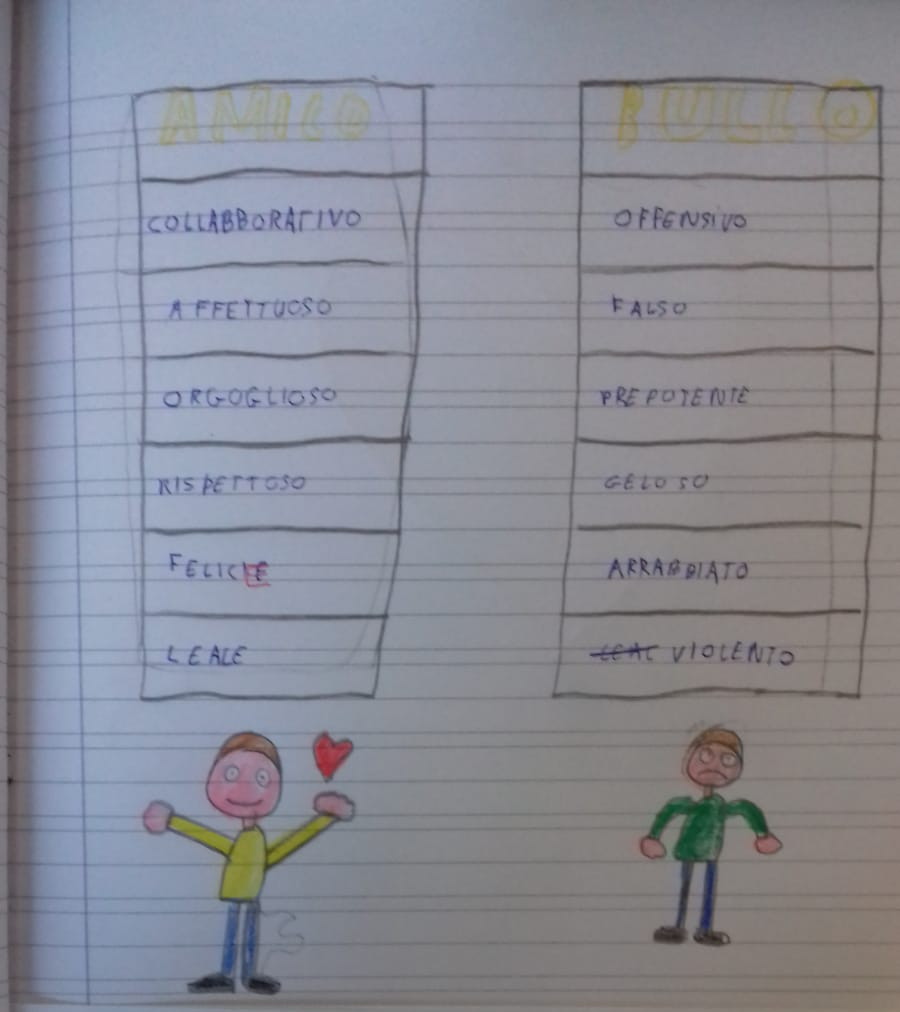 AMICO
COLLABBORATIVO
AFFETTUOSO
ORGOGLIOSO
RISPETTOSO
FELICE
LEALE
BULLO
OFFENSIVO
FALSO
PREPOTENTE
GELOSO
ARRABBIATO
LEAL VIOLENTO